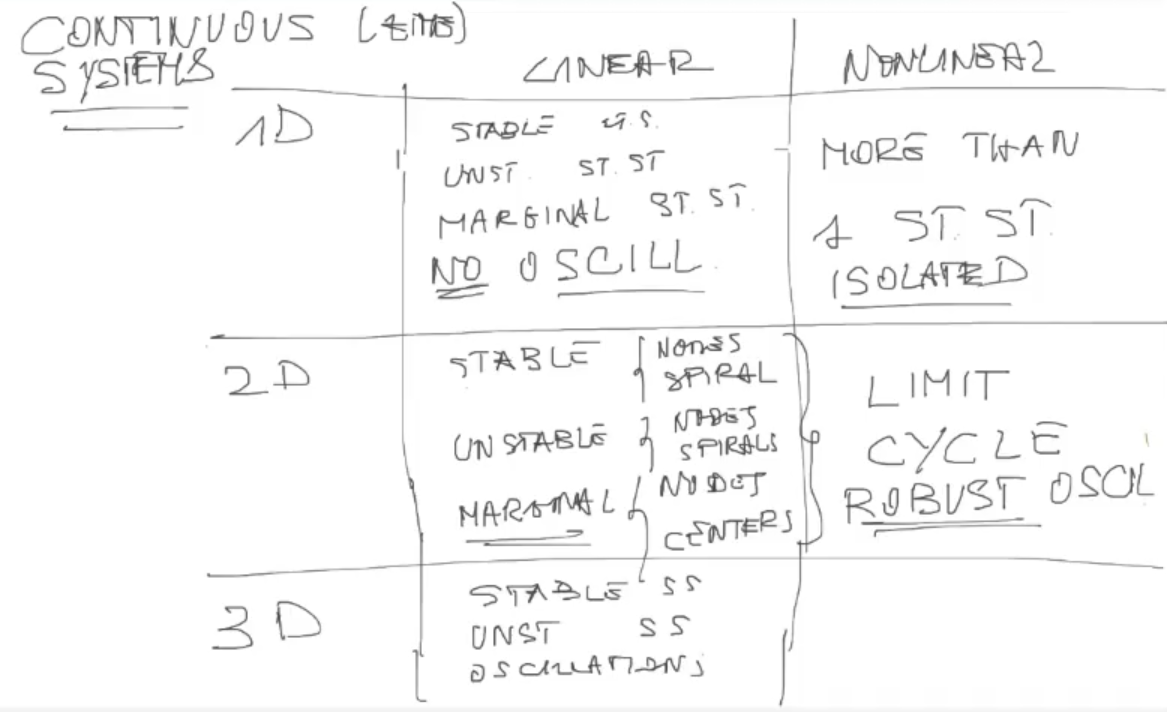 CONTINUOUS (TIME)
SYSTEMS
LINEAR
NONLINEAR
1D
STABLE ST.S.
UNST. ST. ST
MARGINAL ST. ST.
NO OSCILL.
MORE THAN
1 ST. ST.
ISOLATED
2D
STABLE { NODES
SPIRAL
UNSTABLE { NODES
SPIRALS
MARGINAL { NODES
CENTERS
LIMIT
CYCLE
ROBUST OSCIL
3D
STABLE SS
UNST SS
OSCILLATIONS